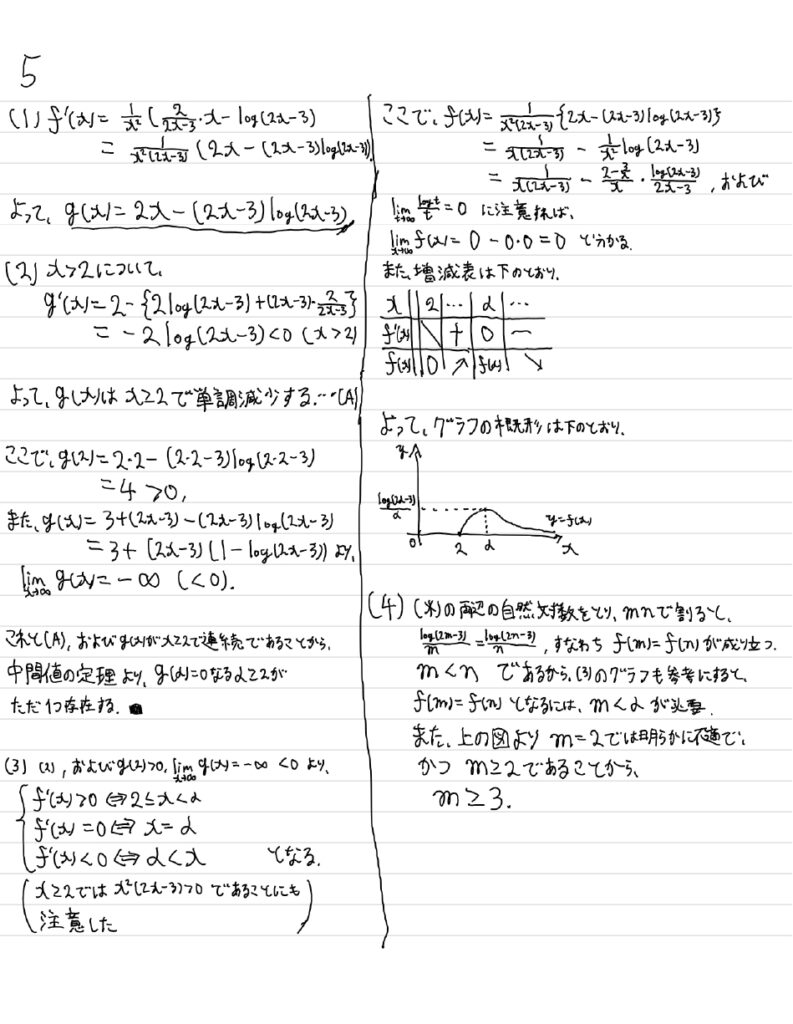 5
(1) f'(x) = 1/x² (2/(2x-3)・x - log(2x-3)
= 1/(x²(2x-3)) (2x - (2x-3)log(2x-3))
よって、g(x) = 2x - (2x-3)log(2x-3)
(2) x>2について、
g'(x) = 2 - {2log(2x-3) + (2x-3)・2/(2x-3)}
= -2log(2x-3) < 0 (x>2)
よって、g(x)は x≧2で単調減少する。…(A)
ここで、g(2) = 2・2 - (2・2-3)log(2・2-3)
= 4 > 0,
また、g(x) = 3+(2x-3)-(2x-3)log(2x-3)
= 3+(2x-3)(1-log(2x-3)) より、
lim x→∞ g(x) = -∞ (<0).
これと(A)、およびg(x)がx≧2で連続であることから、
中間値の定理より、g(α)=0なるα≧2が
ただ1つ存在する.
(3) (2), およびg(2)>0, lim x→∞ g(x) = -∞ <0 より、
f'(x)>0 ⇔ 2≦x<α
f'(x)=0 ⇔ x=α
f'(x)<0 ⇔ α<x となる.
(x≧2では x²(2x-3)>0 であることにも
注意した)
ここで、f(x) = 1/(x²(2x-3)) {2x-(2x-3)log(2x-3)}
= 1/(x(2x-3)) - 1/x² log(2x-3)
= 1/(x(2x-3)) - (2-3/x)/x ・ log(2x-3)/(2x-3), および
lim t→∞ log t/t = 0 に注意すれば、
lim x→∞ f(x) = 0 - 0・0 = 0 と分かる.
また、増減表は下のとおり.
x 2 … α …
f'(x) + 0 -
f(x) 0 ↗ f(α) ↘
よって、グラフの概形は下のとおり.
y
log(2α-3)/α
y=f(x)
0 2 α x
(4) (※)の両辺の自然対数をとり、mnで割ると、
log(2m-3)/m = log(2n-3)/n, すなわち f(m)=f(n)が成り立つ.
m<n であるから、(3)のグラフも参考にすると、
f(m)=f(n) となるには、m<α が必要.
また、上の図より m=2では明らかに不適で、
かつ m≧2であることから、
m≧3.